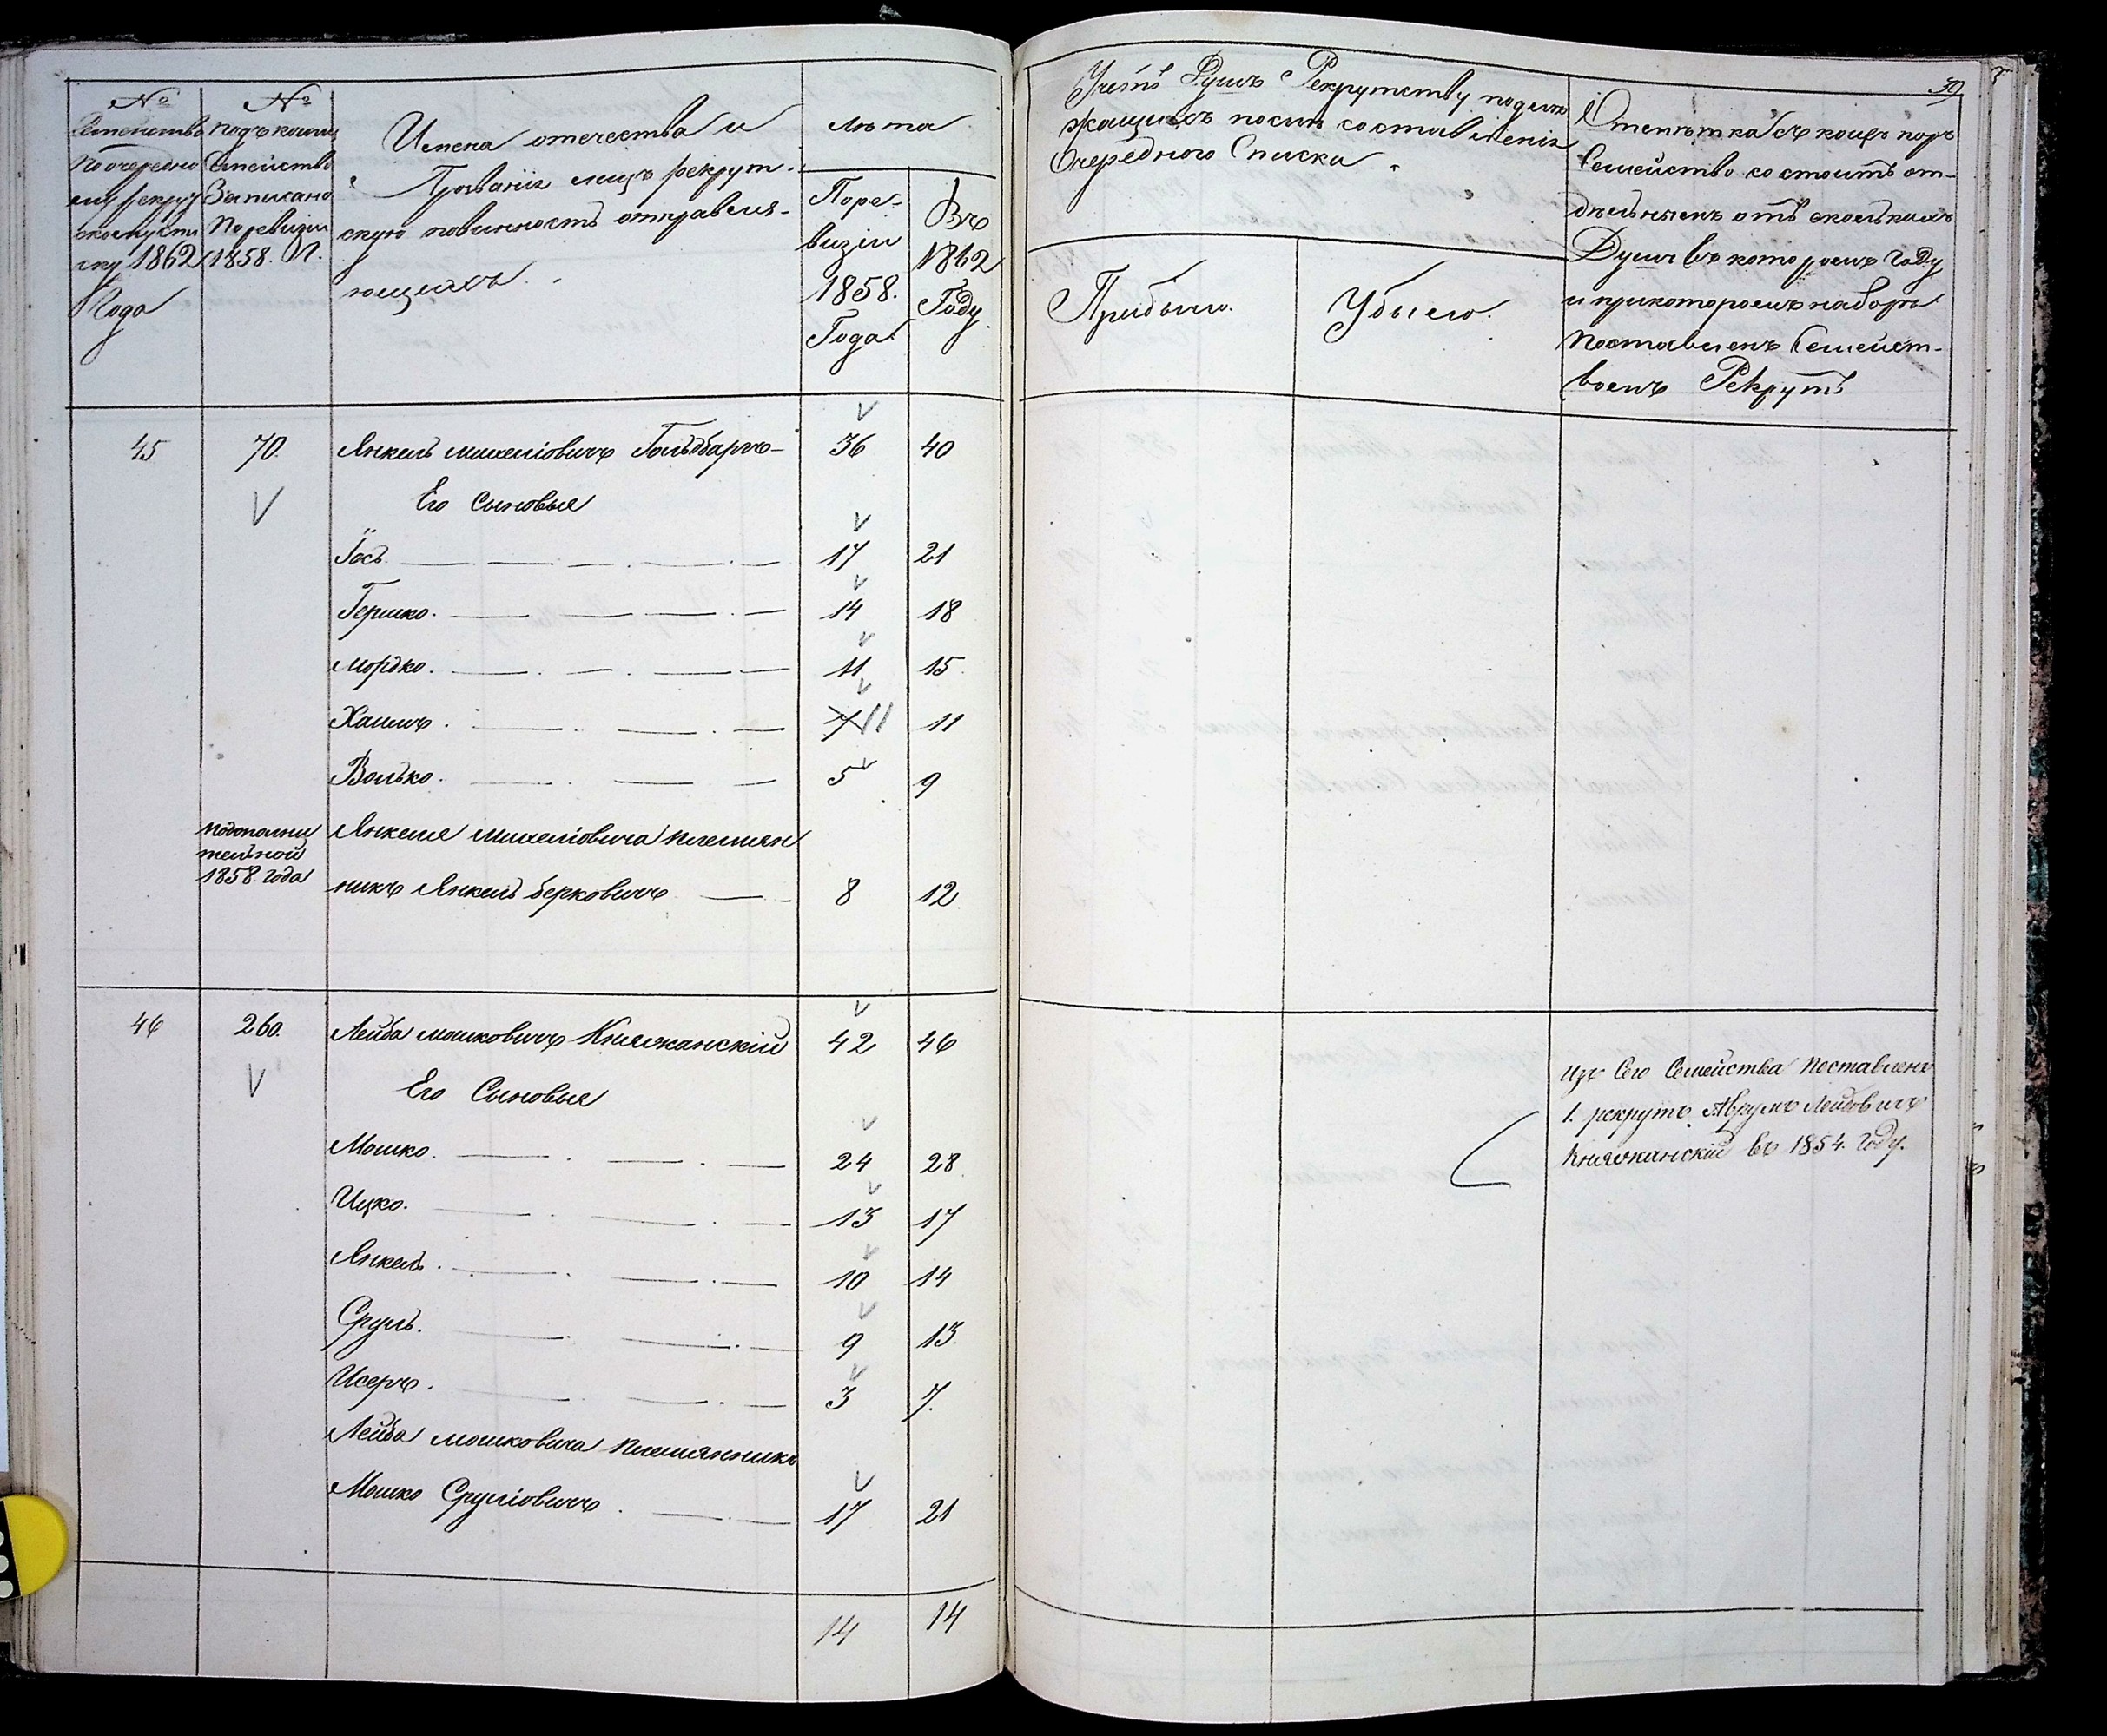 №
Семейства
по очередно
му рекрут
скому спи
ску 1862
Года
№
подъ коимъ
Семейство
Записано
по ревизіи
1858. Г.
Имена отечества и
Прозванія лицъ рекрут-
скую повинность отправля-
ющихъ.
Лѣта
По ре-
визіи
1858.
Года
Въ
1862
Году
45 70. Янкель Михеліовичъ Гольдбаргъ 36 40
Его Сыновья
Іось 17 21
Гершко. 14 18
Мордко. 11 15
Хаимъ. 7 11 11
Волько. 5 9
Подополни
тельной
1858 года
Янкеля Михеліовича племян
никъ Янкель Берковичъ 8 12
46 260. Лейба Мошковичъ Княжанскій 42 46
Его Сыновья
Мошко. 24 28
Ицко. 13 17
Янкель. 10 14
Сруль. 9 13
Исеръ. 3 7.
Лейба Мошковича племянникъ
Мошко Сруліовичъ. 17 21
14 14
39
Учетъ Душъ Рекрутству подле
жащихъ послѣ составленія
Очередного Списка
Прибыло.
Убыло.
Отмѣтка съ коихъ поръ
Семейство состоитъ от-
дѣльнымъ отъ сколькихъ
Душъ въ которомъ году
и при которомъ наборѣ
Поставленъ Семейст-
вомъ Рекрутъ
Изъ Сего Семейства поставленъ
1. рекрутъ Аврумъ Лейбовичъ
Княжанскій въ 1854. Году.